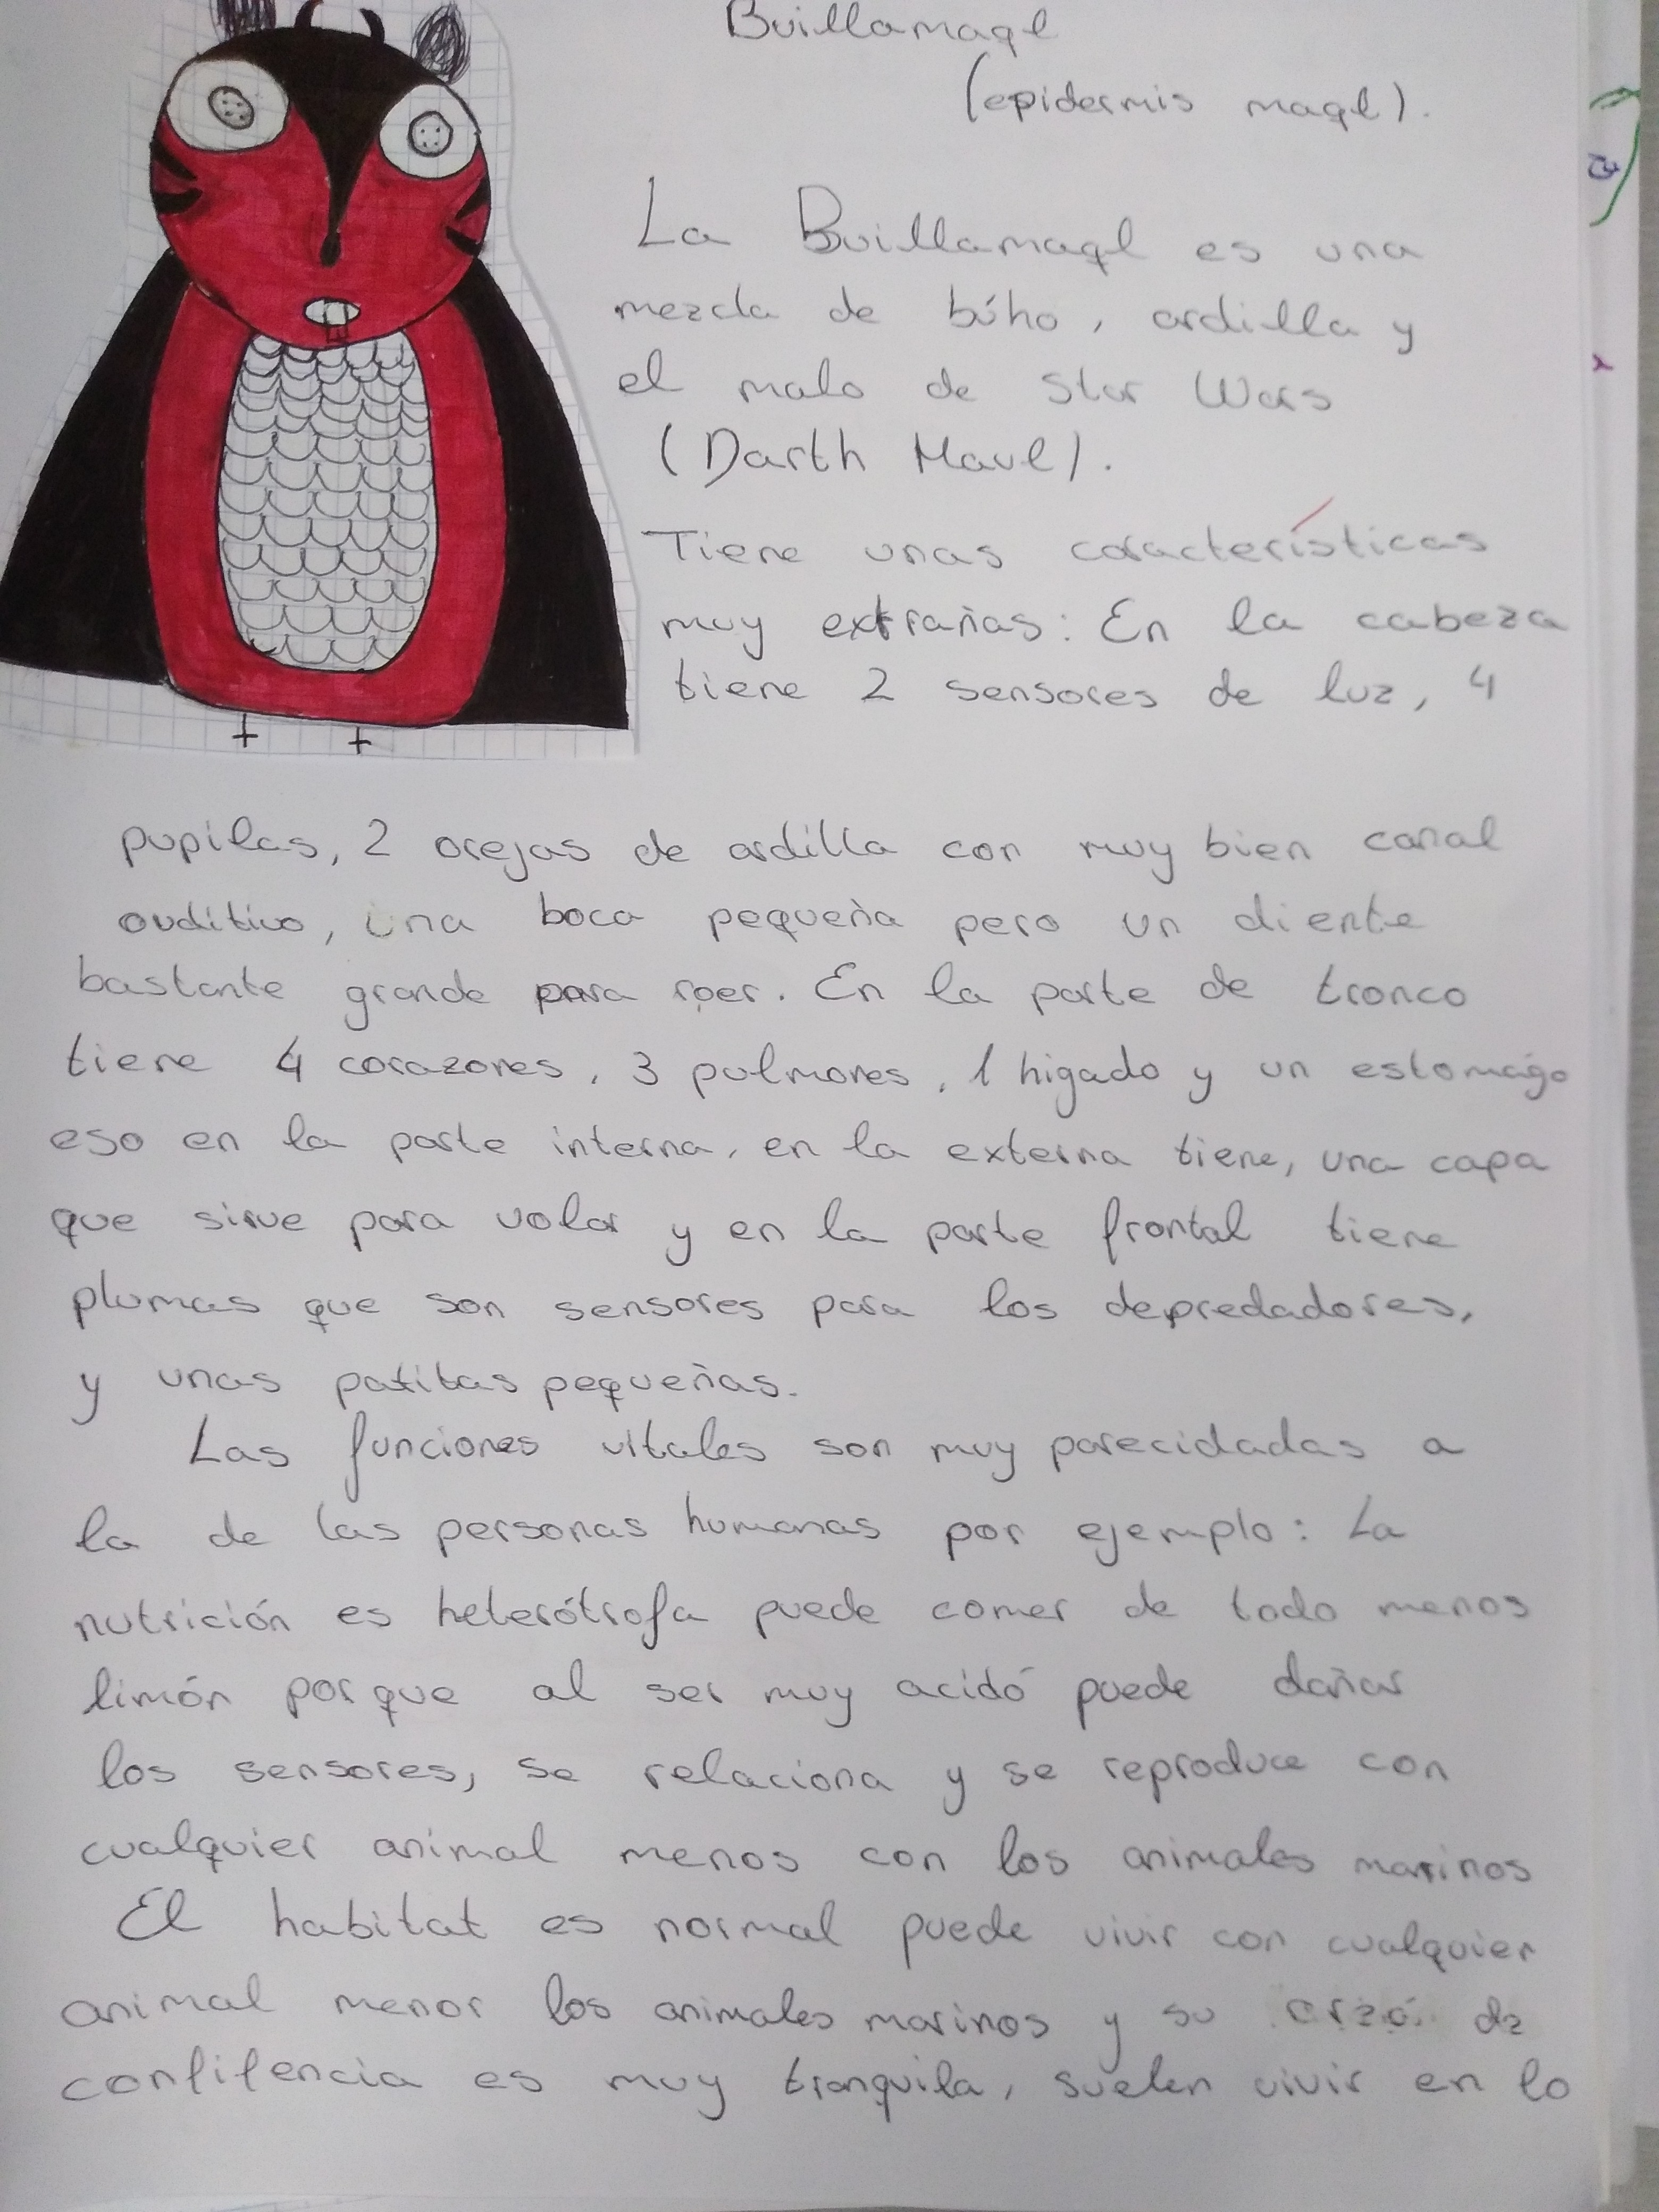 Buillamaql
(epidermis maql).
La Buillamaql es una
mezcla de búho, ardilla y
el malo de Star Wars
(Darth Maul).
Tiene unas características
muy extrañas: En la cabeza
tiene 2 sensores de luz, 4
pupilas, 2 orejas de ardilla con muy bien canal
auditivo, una boca pequeña pero un diente
bastante grande para roer. En la parte de tronco
tiene 4 corazones, 3 pulmones, 1 higado y un estomágo
eso en la parte interna, en la externa tiene, una capa
que sirve para volar y en la parte frontal tiene
plumas que son sensores para los depredadores,
y unas patitas pequeñas.
Las funciones vitales son muy parecidadas a
la de las personas humanas por ejemplo: La
nutrición es heterótrofa puede comer de todo menos
limón porque al ser muy acidó puede dañar
los sensores, se relaciona y se reproduce con
cualquier animal menos con los animales marinos
El habitat es normal puede vivir con cualquier
animal menor los animales marinos y su de
confifencia es muy tranquila, suelen vivir en lo